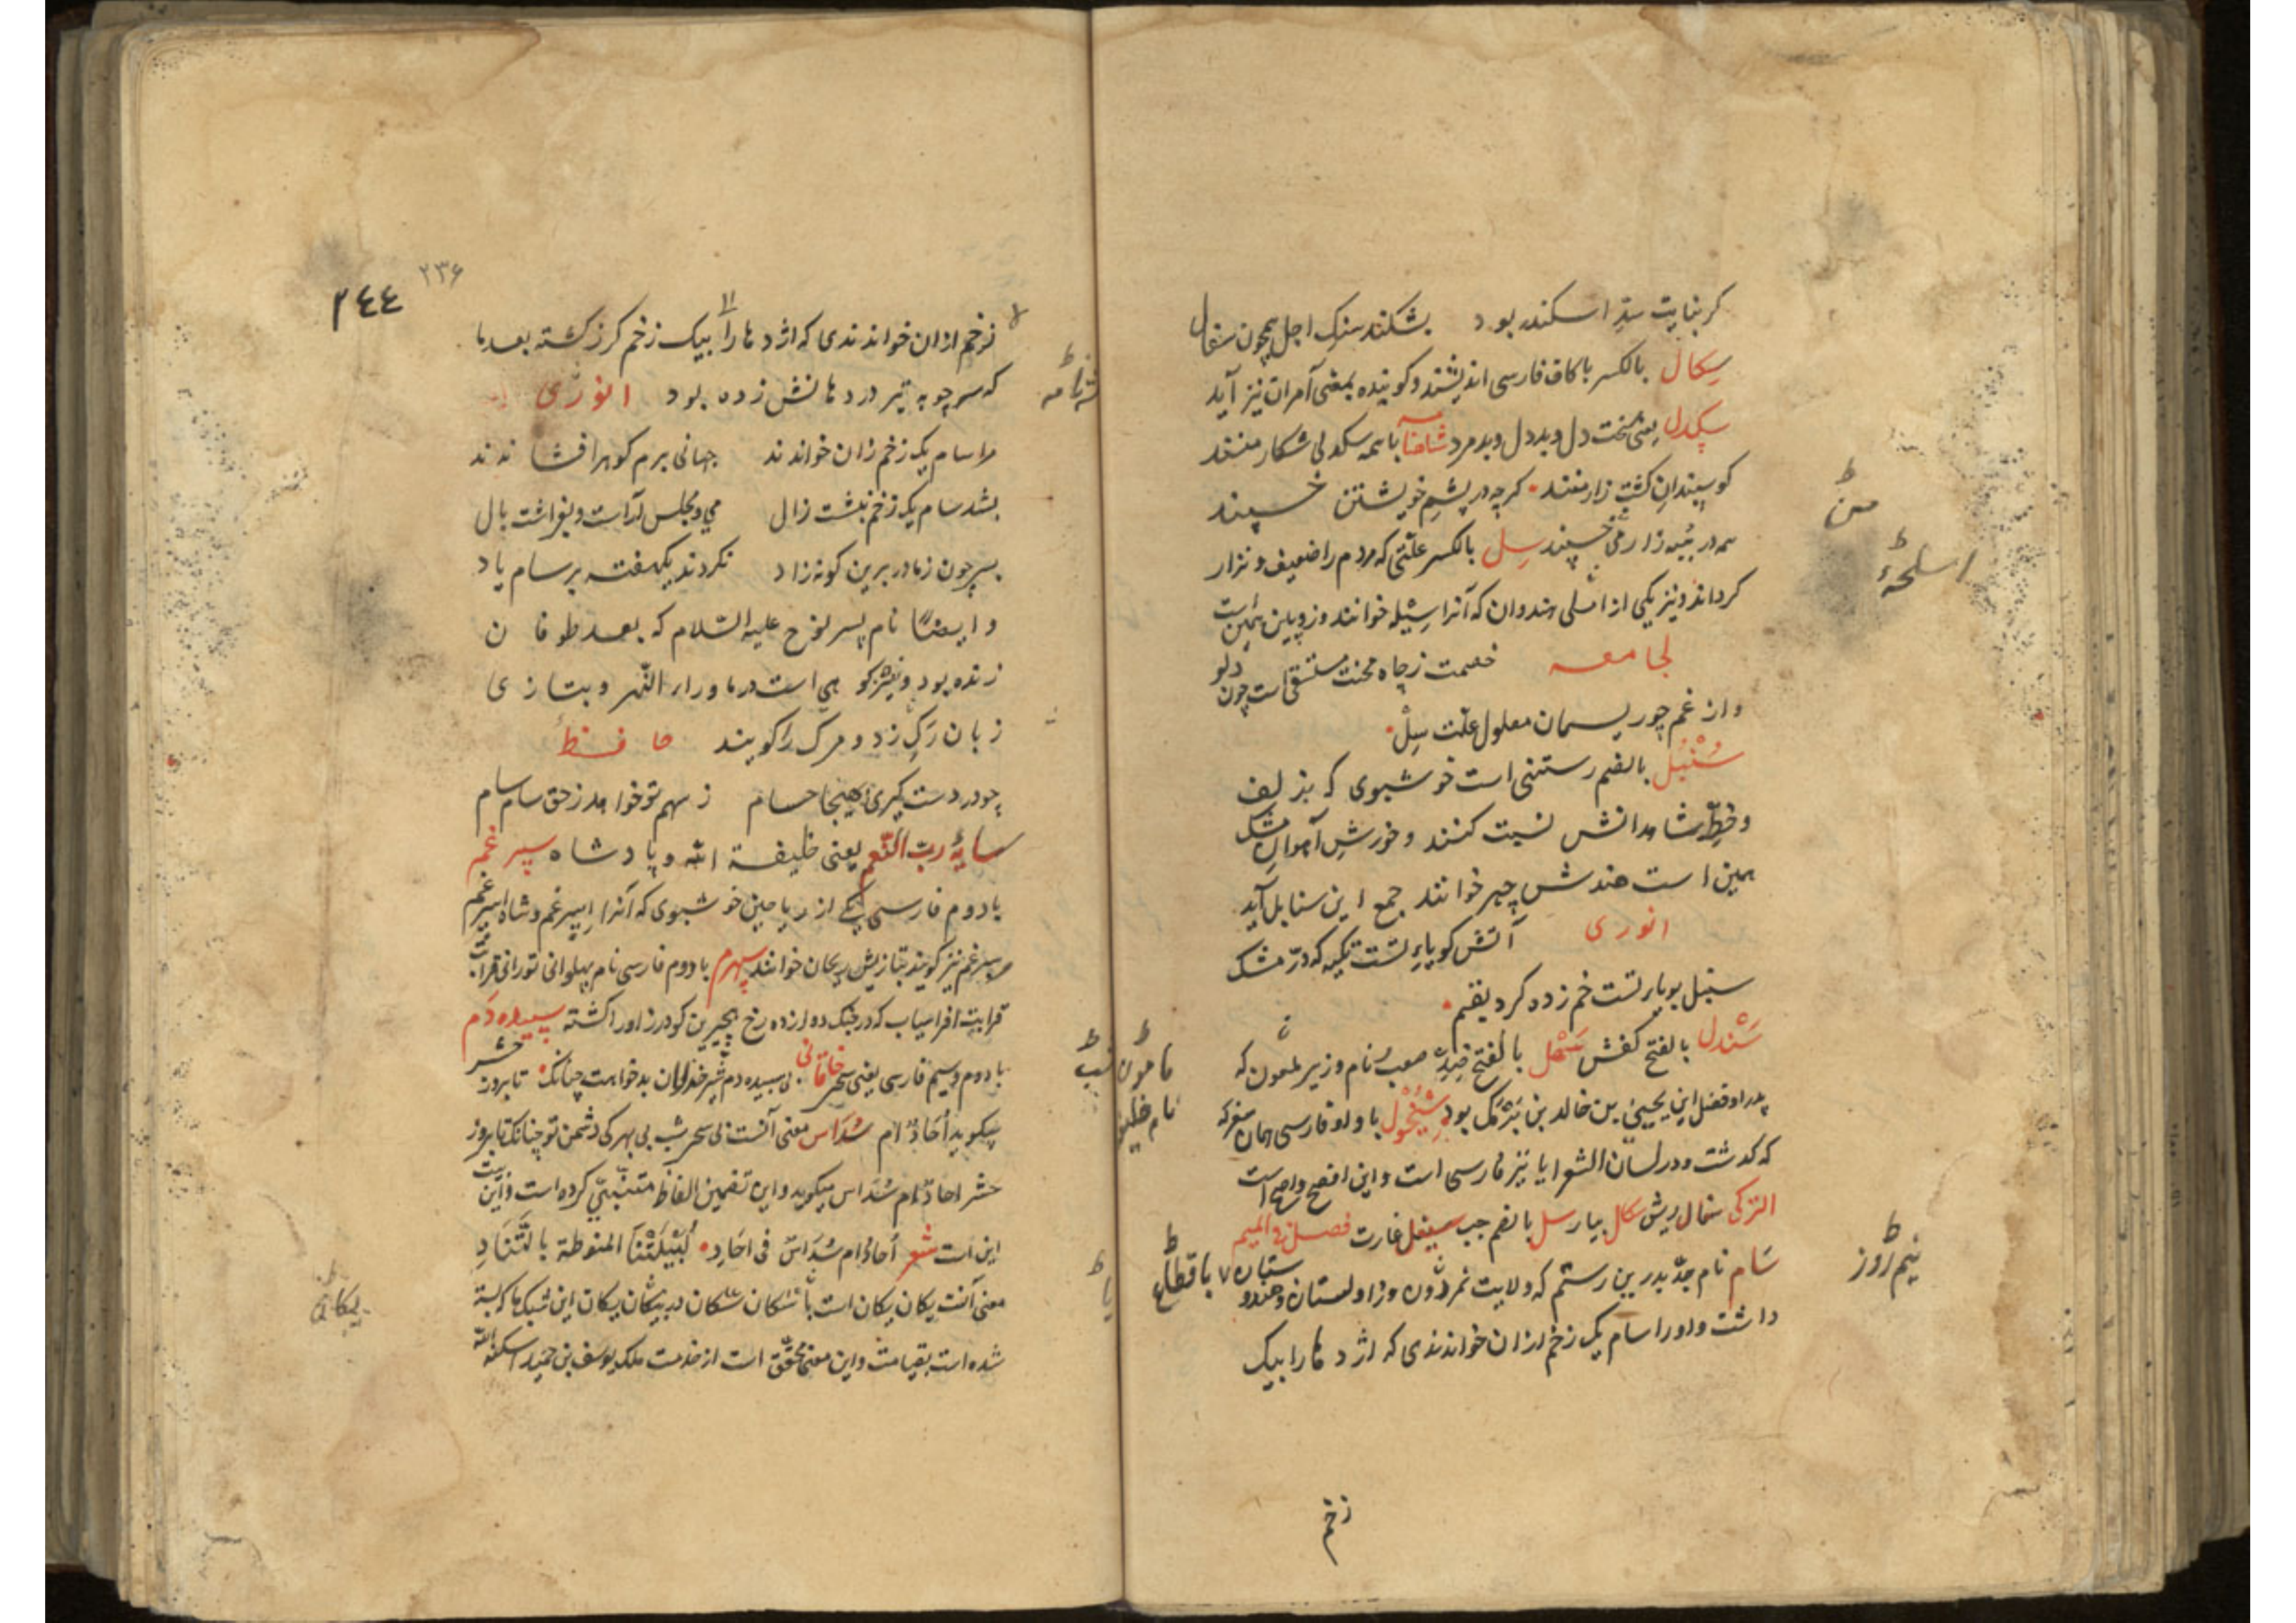 کر بنایت سدِّ اسکندر بود بشکند سنکِ اجل همچون سفال
سِکال بالکسر با کاف فارسی اندیشند و کوینده بمعنی آمران نیز آید
سکدل یعنی سخت دل و بددل و بدمرد شاهنامه با سکدلی شکار منند
کوسپندانِ کشت زار منند کرچه در پشمِ خویشتن خسپند
همه در پنبه زار می خسپند سِل بالکسر علّتی که مردم را ضعیف و نزار
کرداند و نیز یکی از اسلحهٔ هندوان که آنرا سیله خوانند و زوپین همین است
لجامعه خصمت ز چاه محنت مستسقی است چون دلو
و از غم چو ریسمان معلول علّت سِلْ
سُنْبُل بالضم رستنی است خوشبوی که بزلف
و خطِّ شاهدانش نسبت کنند و خورشِ آهوانِ مشک
همین است هندش چهر خوانند جمع این سنابل آید
انوری آتش کو یارِ تست تکیه که در مشک
سنبل بویارِ تست خم زده کرد یقم
سَنْدل بالفتح کفش سَهْل بالفتح ضِدِّ صعب و نام وزیر مامون که
پدر او فضل ابن یحییٰ بن خالد بن برمک بود سِیْخُول با واو فارسی همان سغرکه
که کدشت و در لسان الشعرا با یا نیز فارسی است و این افصح و اصح است
الترکی سفال ریش سکال بیار سل بالضم جب سیغل غارت فصل فی المیم
سَام نام جدّ پدرین رستم که ولایت نیمروز و زاولستان و هندو
داشت و او را سام یک زخم ازان خواندندی که اژدها را بیک
زخم
من
اسلحهٔ
مامون
نام خلیفه
نیم روز
۲۳۶
۲۴۴
زخم ازان خواندندی که اژدها را بیک زخم کرز کشته بعد ما
که سر چوبه تیر در دهانش زده بود انوری
مرا سام یک زخم زان خواندند جهانی برم کوهر افشاندند
بشد سام یک زخم بنشست زال می و مجلس آراست و بفراشت یال
پسر چون ز مادر برین کونه زاد نکردند یکهفته بر سام یاد
و ایضاً نام پسر نوح علیه السّلام که بعد طوفان
زنده بود و نیز کوهی است در ماوراء النّهر و بتازی
زبان رَکِ زر و مرک را کویند حافظ
چو در دست کیری بهیجا حسام ز سهم تو خواهد ز حق سام سام
سایهٔ ربّ النّعم یعنی خلیفة الله و پادشاه سپرغم
با دوم فارسی یکی از ریاحین خوشبوی که آنرا اسپرغم و شاه اسپرغم
و سپرغم نیز کویند بتازیش ریحان خوانند سپهرم با دوم فارسی نام پهلوانی تورانی قرابت
قرابت افراسیاب که در جنک دوازده رخ هجیر بن کودرز او را کشته سپیده دم
با دوم و سیم فارسی یعنی سحر خاقانی بی سپیده دم شبِ خذلان بدخواهت چنانک تا بروز حشر
میکوید اُحَادٌ ام سُدَاس معنی آنست بی سحر شب بی بهرکی دشمن تو چنانک تا بروز
حشر احادٌ ام سُدَاس میکوید و این تضمین الفاظ متنبّی کرده است و این بیت
این است شعر اُحَادٌ ام سُدَاسٌ فی اُحَادِ لُیَیْلَتُنَا المنوطة بالتَّنَادِ
معنی آنست یکان یکان است یا ششکان ششکان در یکان یکان این شبک ما که بسته
شده است بقیامت و این معنی محقّق است از خدمت ملک یوسف بن حمید اسکنه الله
شهنامه
یکانی
یا